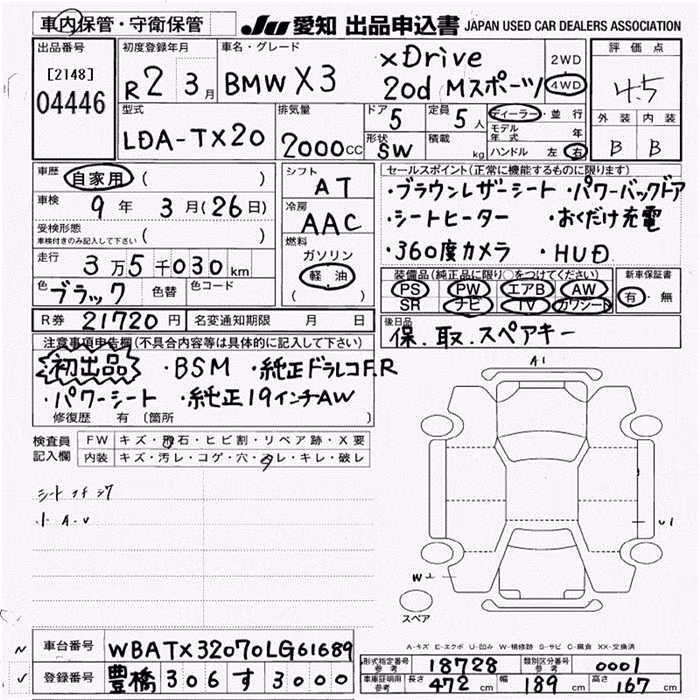 車内保管・守衛保管
JU 愛知 出品申込書 JAPAN USED CAR DEALERS ASSOCIATION
出品番号
[2148]
04446
初度登録年月
R2 3月
車名・グレード
BMW X3
xDrive
20d Mスポーツ
2WD
4WD
評価点
4.5
外装 内装
B B
型式
LDA-TX20
排気量
2000cc
ドア
5
定員
5人
形状
SW
積載
kg
ディーラー・並行
モデル年式 年
ハンドル 左 右
車歴
自家用 ( )
車検
9年 3月(26日)
受検形態
車検付きのみ記入して下さい ( )
走行
3万5千030km
色
ブラック
色替
色コード
シフト
AT
冷房
AAC
燃料
ガソリン
軽油
( )
セールスポイント(正常に機能するものに限ります)
・ブラウンレザーシート ・パワーバックドア
・シートヒーター ・おくだけ充電
・360度カメラ ・HUD
装備品(純正品に限り○をつけてください)
PS PW エアB AW
SR ナビ TV カワシート
新車保証書
有・無
R券 21720円 名変通知期限 月 日
後日品
保.取.スペアキー
注意事項申告欄(不具合内容等は具体的に記入して下さい)
初出品 ・BSM ・純正ドラレコF.R
・パワーシート ・純正19インチAW
修復歴 有 〔箇所 〕
検査員
記入欄
FW キズ・飛石・ヒビ割・リペア跡・X要
内装 キズ・汚レ・コゲ・穴・スレ・キレ・破レ
小A.U
A1
U1
W
スペア
A-キズ E-エクボ U-凹み W-補修跡 S-サビ C-腐食 XX-交換済
車台番号 WBATX32070LG61689
登録番号 豊橋 306 す 3000
形式指定番号 参考 18728 類別区分番号 参考 0001
車庫証明用 参考 長さ 472cm 幅 189cm 高さ 167cm